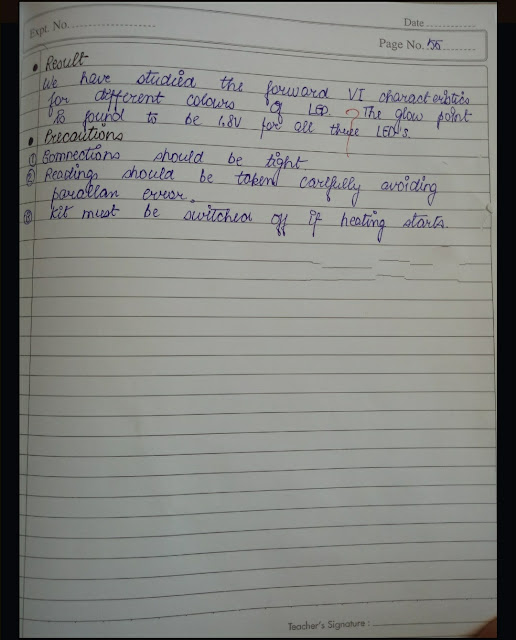 Expt. No.
Date
Page No. 55
• Result
We have studied the forward VI characteristics
for different colours of LED. The glow point
is found to be 1.8V for all three LED's.
• Precautions
① Connections should be tight
② Readings should be taken carefully avoiding
parallax error.
③ Kit must be switched off if heating starts.
Teacher's Signature :